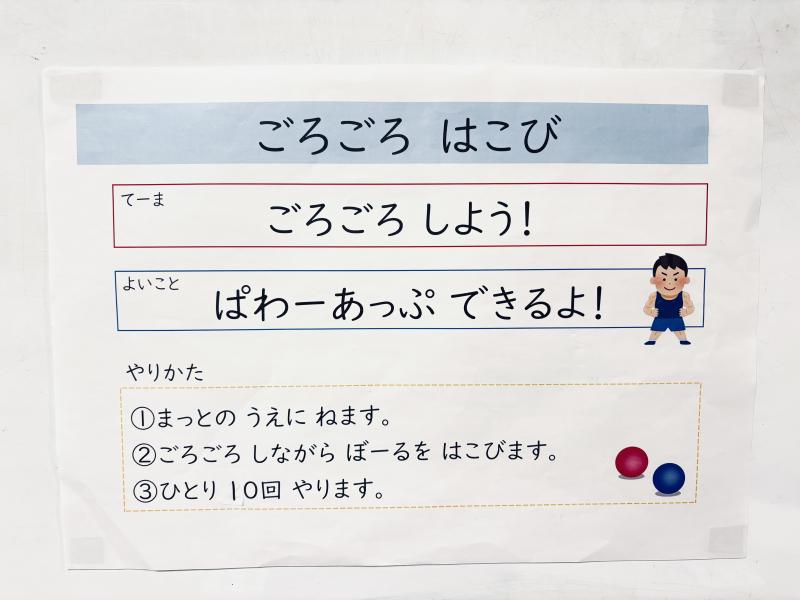 ごろごろ はこび
てーま
ごろごろ しよう!
よいこと
ぱわーあっぷ できるよ!
やりかた
①まっとの うえに ねます。
②ごろごろ しながら ぼーるを はこびます。
③ひとり 10回 やります。